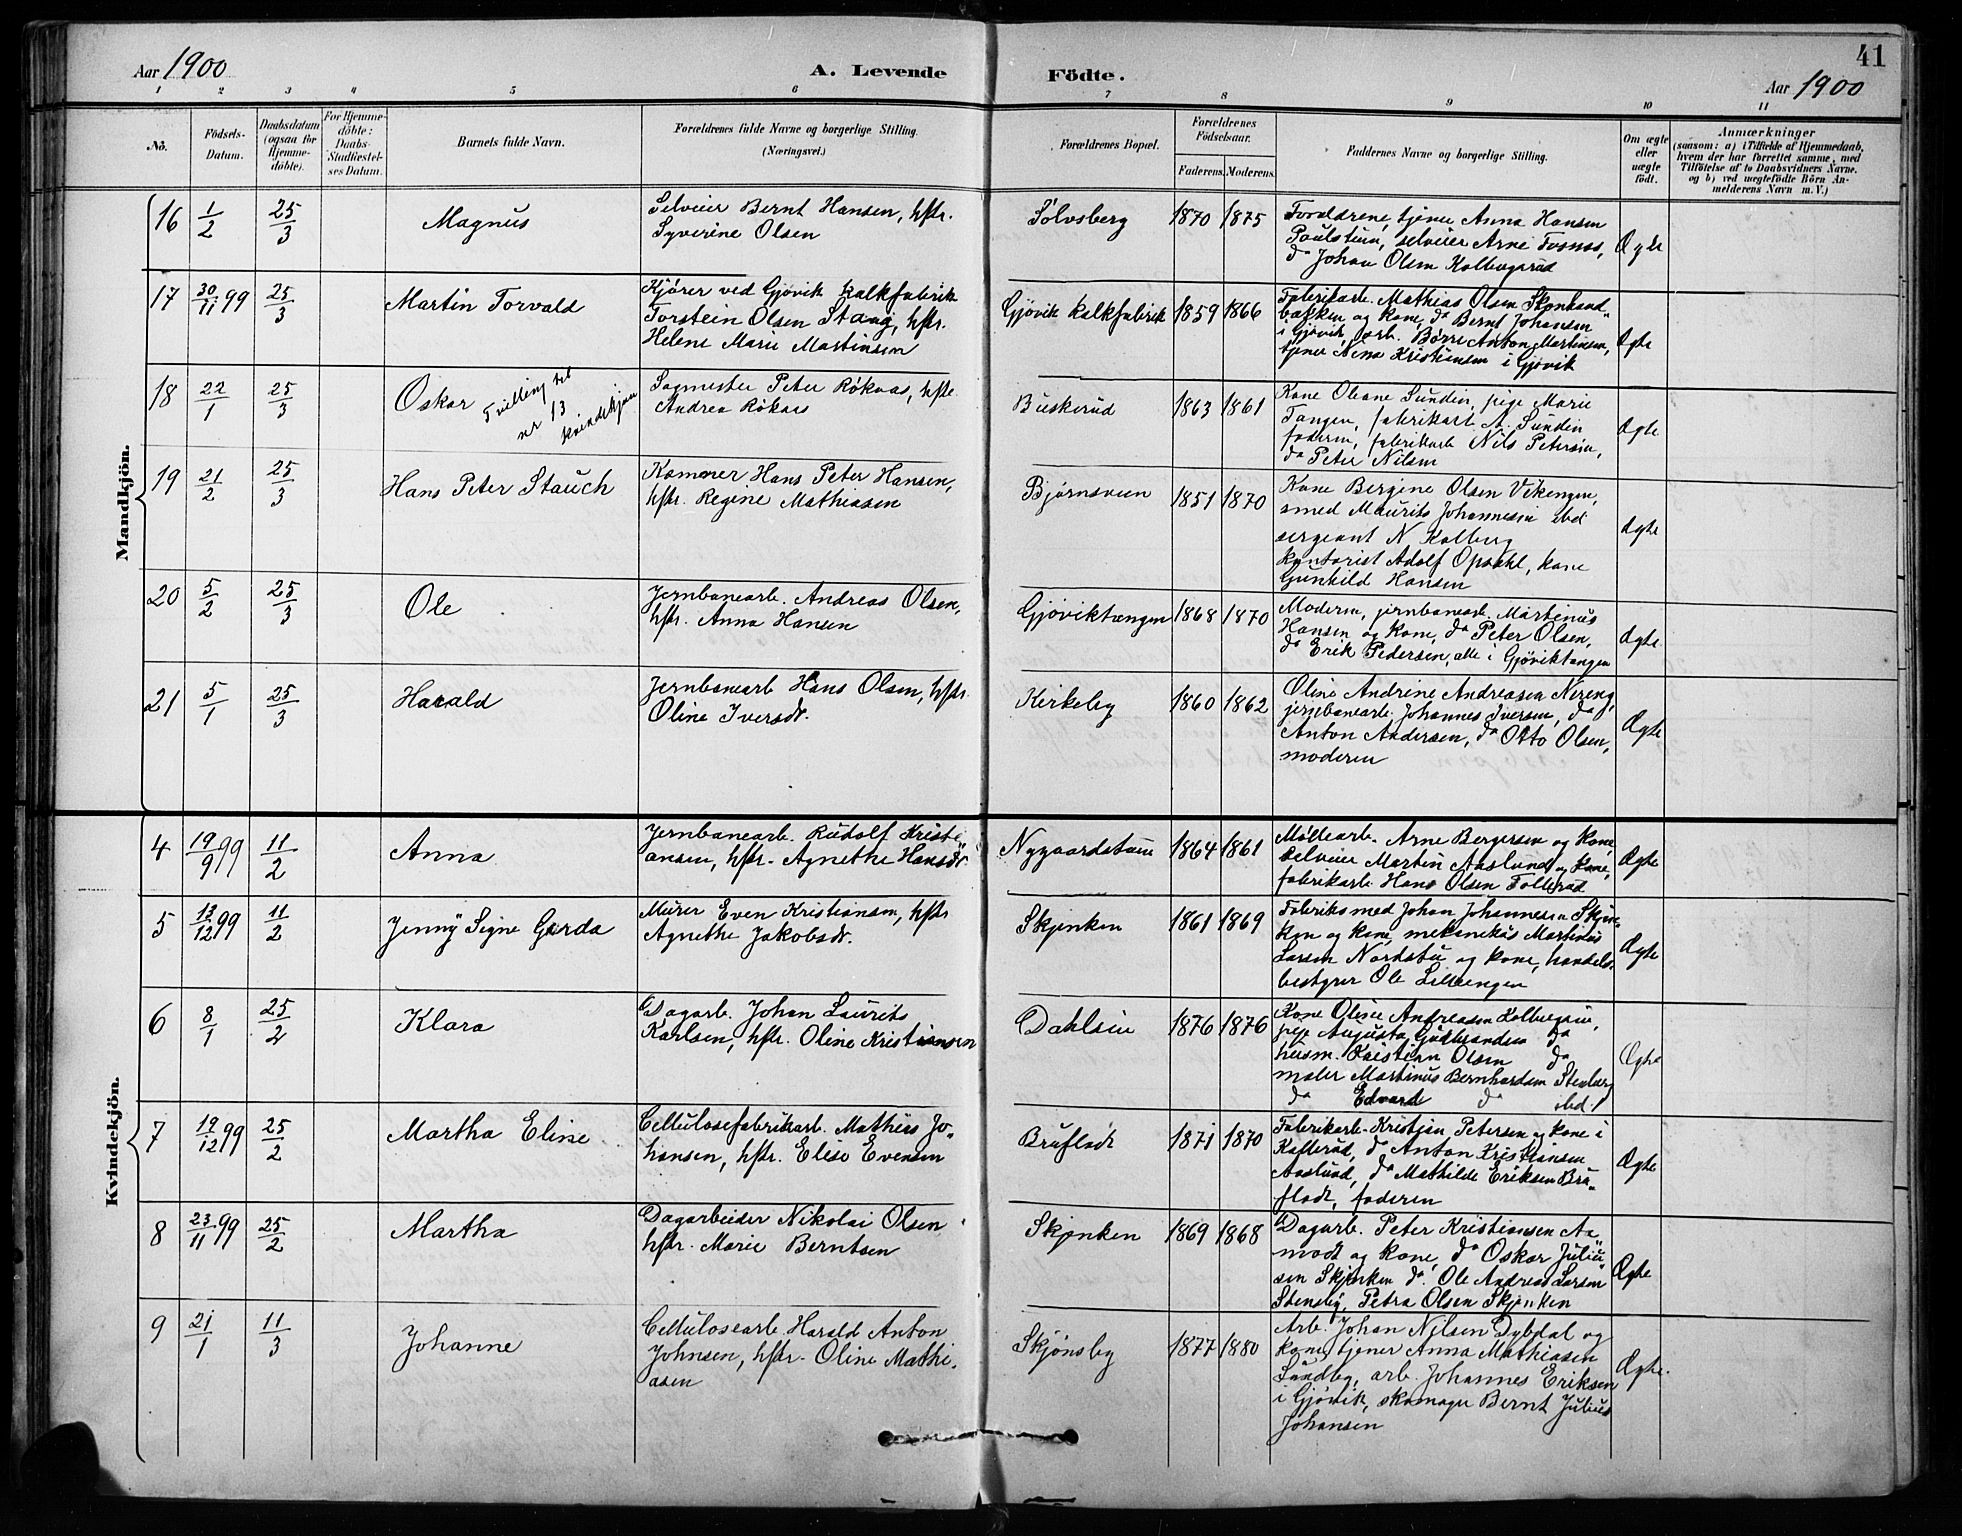 41
Aar 1900 A. Levende Födte. Aar 1900
1 2 3 4 5 6 7 8 9 10 11
No. Födsels-Datum. Daabsdatum (ogsaa for Hjemmedöbte). For Hjemmedöbte: Daabs-Stadfæstelses Datum. Barnets fulde Navn. Forældrenes fulde Navne og borgerlige Stilling. (Næringsvei.) Forældrenes Bopæl. Forældrenes Födselsaar. Faderens. Moderens. Faddernes Navne og borgerlige Stilling. Om ægte eller uægte födt. Anmærkninger (saasom: a) i Tilfælde af Hjemmedaab, hvem der har forrettet samme, med Tilföielse af to Daabsvidners Navne. og b) ved uegtefödte Börn Anmelderens Navn m. V.)
Mandkjön.
16 1/2 25/3 Magnus
Selveier Bernt Hansen, hstr.
Syverine Olsen
Sølvsberg 1870 1875
Forældrene, tjener Anna Hansen
Paulstuen, selveier Arne Fosnes,
do Johan Olsen Kolbergsrud
Ægte
17 30/11 99 25/3 Martin Torvald
Kjører ved Gjøvik kalkfabrik
Torstein Olsen Staaij, hstr.
Helene Marie Martinsen
Gjøvik kalkfabrik 1859 1866
Fabrikarb. Mathias Olsen
bakken og kone, do Bernt Johansen
i Gjøvik, arb. Børre Anton Martinsen,
tjener Nina Kristiansen i Gjøvik
Ægte
18 22/1 25/3 Oskar
Tvilling til
nr 13
kvindekjøn
Sagmester Peter Røknas, hstr
Andrea Røknas
Buskerud 1863 1861
Kone Oleane Sundin, pige Marie
Tangen, fabrikarb A. Sundin
faderen, fabrikarb Nils Petersen,
do Peter Nilsen
Ægte
19 21/2 25/3 Hans Peter Stauch
Kamner Hans Peter Hansen,
hstr. Regine Mathiasen
Bjørnsveen 1851 1870
Kone Bergine Olsen Vikengen,
smed Maurits Johannesen ibd
sergeant N Kolberg
kontorist Adolf Opdahl, kone
Gunhild Hansen
Ægte
20 5/2 25/3 Ole
Jernbanearb. Andreas Olsen,
hstr. Anna Hansen
Gjøviktangen 1868 1870
Moderen, jernbanearb. Martinus
Hansen og kone, do Peter Olsen,
do Erik Pedersen, alle i Gjøviktangen
Ægte
21 5/1 25/3 Harald
Jernbanearb Hans Olsen, hstr.
Oline Iversdr.
Kirkeby 1860 1862
Oline Andrine Andreasen Nereng,
jernbanearb. Johannes Iversen, do
Anton Andersen, do Otto Olsen,
moderen
Ægte
Kvindekjön.
4 19/9 99 11/2 Anna
Jernbanearb. Rudolf Kristi
ansen, hstr. Agnethe Hansdr
Nygaardstuen 1864 1861
Møllearb. Arne Bergersen og kone,
selveier Martin Aaslund og kone,
fabrikarb. Hans Olsen Tollerud
Ægte
5 13/12 99 11/2 Jenny Signe Gerda
Murer Even Kristiansen, hstr
Agnethe Jakobsdr.
Skjenken 1861 1869
Fabriksmed Johan Johannesen Skjen„
ken og kone, mekanikus Martinus
Larsen Nordstu og kone, handels„
bestyrer Ole Lilleengen
Ægte
6 8/1 25/2 Klara
Dagarb. Johan Laurits
Karlsen, hstr. Oline Kristiansen
Dahlsiu 1876 1876
Kone Oline Andreasen
pige Augusta Gudbrandsen do
husm. Kristian Olsen do
maler Martinus Bernhardsen Stenberg
do Edvard do ibd.
Ægte
7 19/12 99 25/2 Martha Eline
Cellulosefabrikarb. Mathias Jo„
hansen, hstr. Elise Evensen
Bruflødt 1871 1870
Fabrikarb. Kristian Petersen og kone i
Kallerud, do Anton Kristiansen
Aaslund, do Mathilde Eriksen Bru„
flødt, faderen
Ægte
8 23/11 99 25/2 Martha
Dagarbeider Nikolai Olsen
hstr. Marie Berntsen
Skjenken 1869 1868
Dagarb. Peter Kristiansen Aa
modt og kone, do Oskar Juliu„
sen Skjenken do. Ole Andreas Larsen
Stensby, Petra Olsen Skjenken
Ægte
9 21/1 11/3 Johanne
Cellulosearb. Harald Anton
Johnsen, hstr. Oline Mathi„
asen
Skjønsby 1877 1880
Arb. Johan Nilsen Dybdal og
kone, tjener Anna Mathiasen
Sundby, arb. Johannes Eriksen
i Gjøvik, skomager Bernt Julius
Johansen
Ægte.